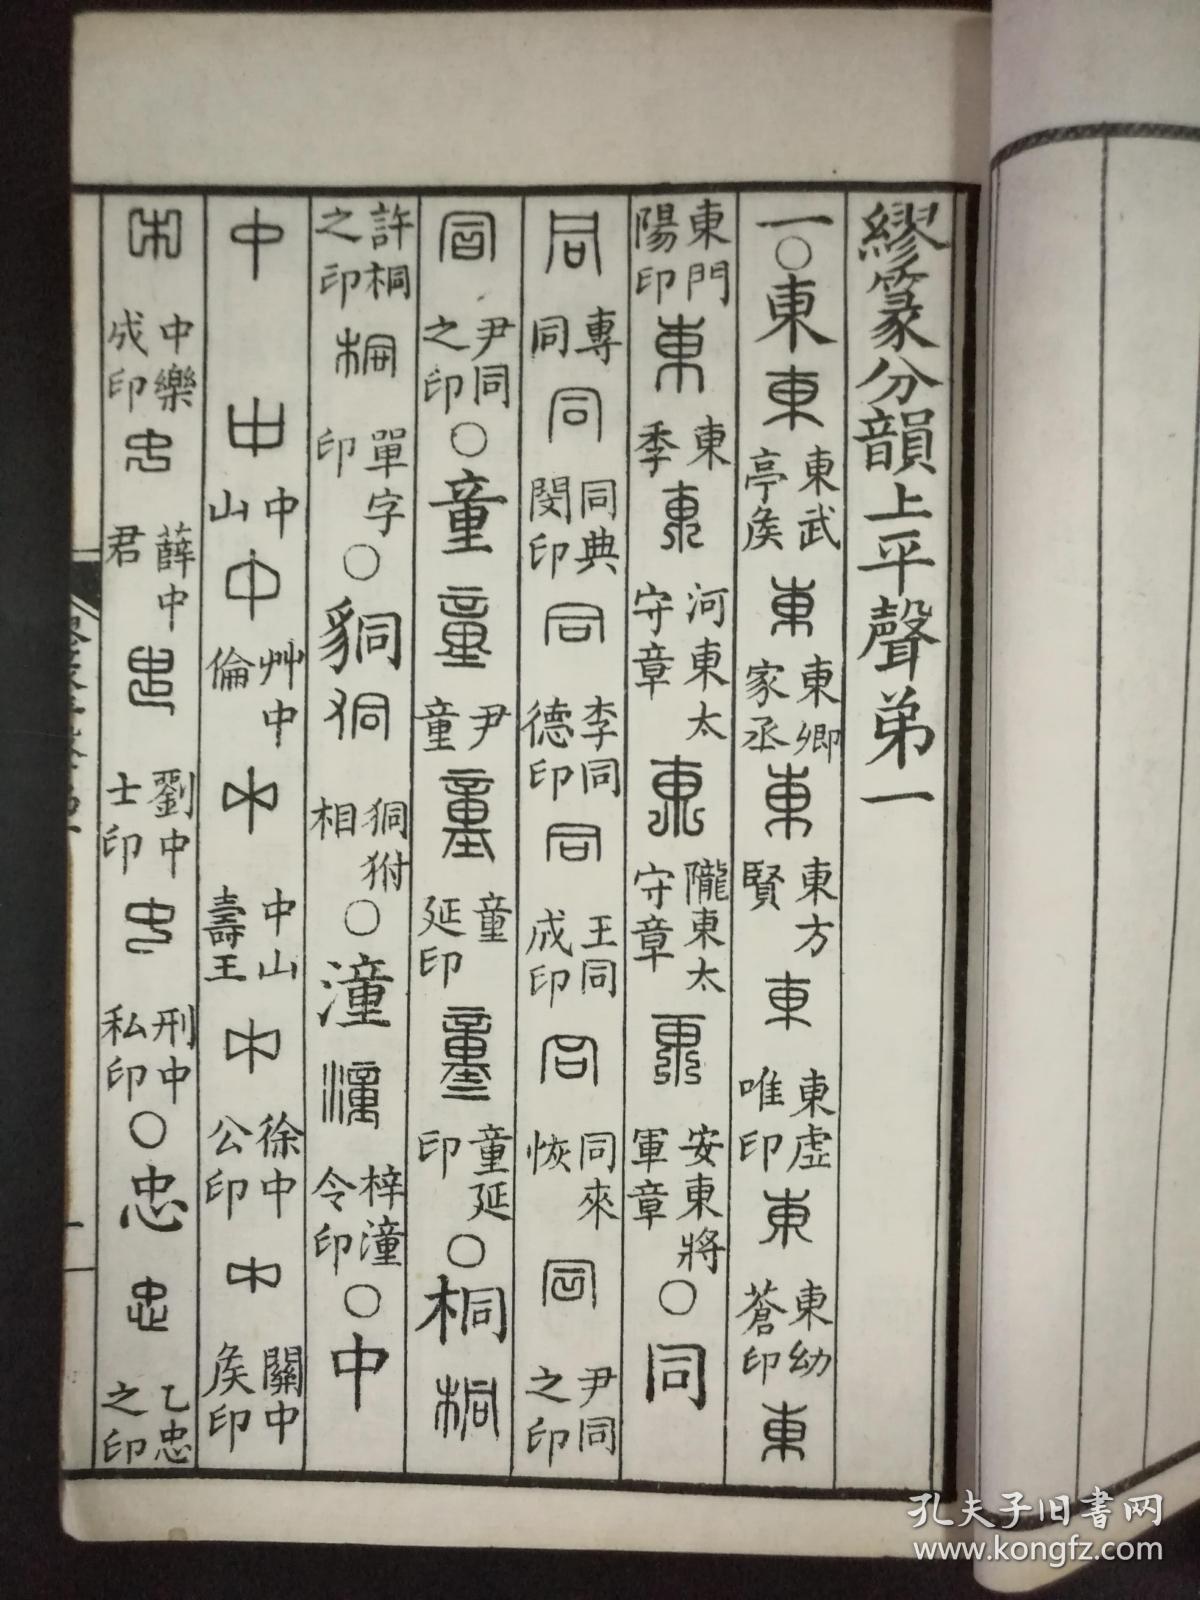 繆篆分韻上平聲弟一
一○東 東 東武亭矦 東 東鄉家丞 東 東方賢 東 東虛唯印 東 東幼蒼印 東
東門陽印 東 東季 東 河東太守章 東 隴東太守章 東 安東將軍章○同
同 專同 同 同典閔印 同 李同德印 同 王同成印 同 同來恢 同 尹同之印
同 尹同之印○童 童 尹童 童 童延印 童 童延印○桐 桐
許桐之印 桐 單字印○狪 狪 狪狝相○潼 潼 梓潼令印○中
中 中 中山 中 艸中倫 中 中山壽王 中 徐中公印 中 關中矦印
中 中樂成印 忠 薛中君 中 劉中士印 中 刑中私印○忠 忠 乙忠之印
孔夫子旧書网
www.kongfz.com